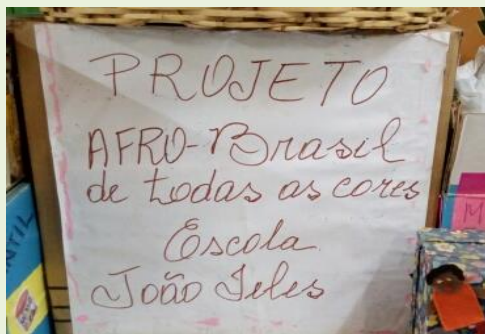 PROJETO
AFRO-Brasil
de todas as cores
Escola
João Teles
NTIL
M